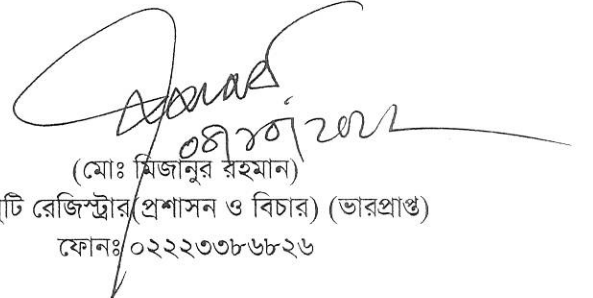 (মোঃ মিজানুর রহমান)
টি রেজিস্ট্রার(প্রশাসন ও বিচার) (ভারপ্রাপ্ত)
ফোনঃ ০২২২৩৩৮৬৮২৬